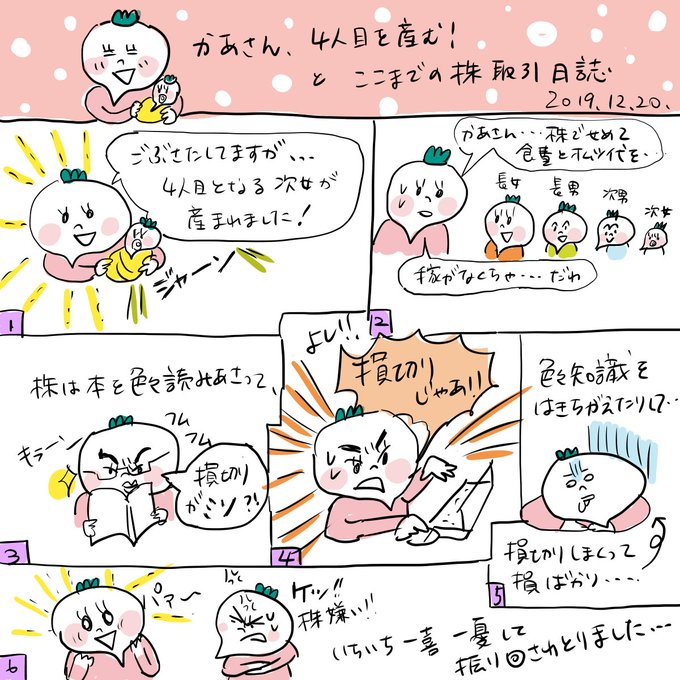 かあさん、4人目を産む!
と ここまでの株取引日誌
2019.12.20.
ごぶさたしてますが、、、
4人目となる次女が
産まれました!
ジャーン
1
かあさん・・・株でせめて
食費とオムツ代を・・
長女
長男
次男
次女
稼がなくちゃ・・・だわ
2
株は本を色々読みあさって、
キラーン
フム
フム
損切り
がミソ?!
3
よし!!
損切り
じゃあ!!
4
色々知識を
はきちがえたりして・・
損切りしまくって
損ばかり・・・・
5
パァ〜
ケッ!!
株嫌い!!
いちいち一喜一憂して
振り回されとりました・・・
6